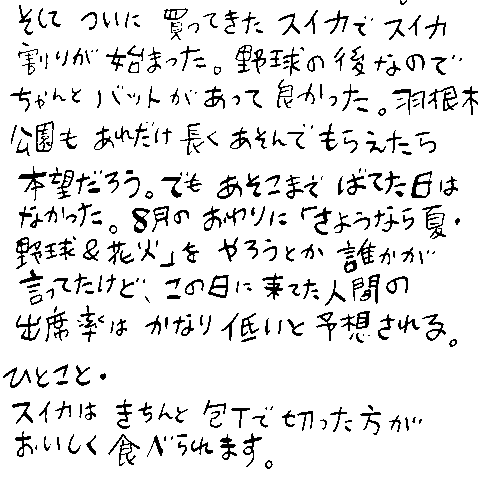 そして ついに 買ってきた スイカで スイカ
割りが 始まった。野球の後なので
ちゃんと バットがあって 良かった。羽根木
公園も あれだけ 長く あそんで もらえたら
本望だろう。でも あそこまで ばてた日は
なかった。8月の おわりに「さようなら夏・
野球&花火」を やろうとか 誰かが
言ってたけど、この日に 来てた人間の
出席率は かなり 低いと 予想される。
ひとこと・
スイカは きちんと 包丁で 切った方が
おいしく 食べられます。